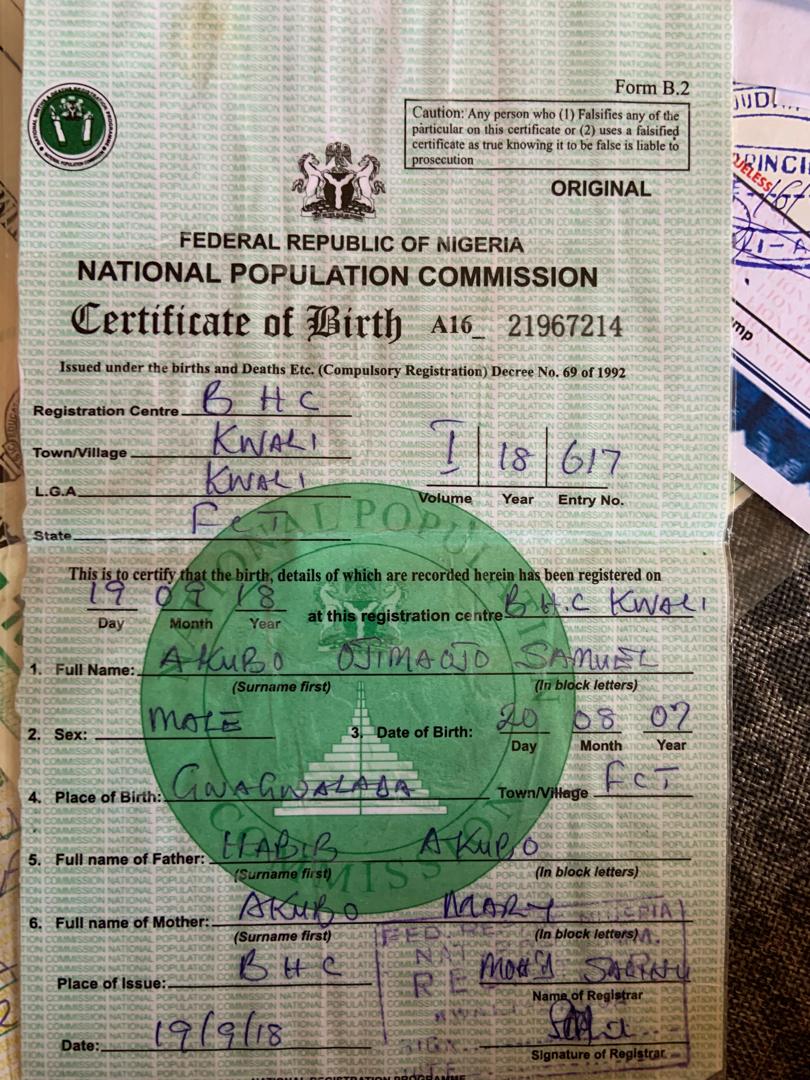 Form B.2
Caution: Any person who (1) Falsifies any of the
particular on this certificate or (2) uses a falsified
certificate as true knowing it to be false is liable to
prosecution
ORIGINAL
FEDERAL REPUBLIC OF NIGERIA
NATIONAL POPULATION COMMISSION
Certificate of Birth A16_ 21967214
Issued under the births and Deaths Etc. (Compulsory Registration) Decree No. 69 of 1992
Registration Centre B H C
Town/Village KWALI
L.G.A KWALI
I 18 617
Volume Year Entry No.
State FCT
This is to certify that the birth, details of which are recorded herein has been registered on
19 09 18 at this registration centre B H.C KWALI
Day Month Year
1. Full Name: AKUBO OJIMAOJO SAMUEL
(Surname first) (In block letters)
2. Sex: MALE 3. Date of Birth: 20 08 07
Day Month Year
4. Place of Birth: GWAGWALADA Town/Village FCT
5. Full name of Father: HABIB AKUBO
(Surname first) (In block letters)
6. Full name of Mother: AKUBO MARY
(Surname first) (In block letters)
Place of Issue: B H C
Name of Registrar
Date: 19/9/18
Signature of Registrar